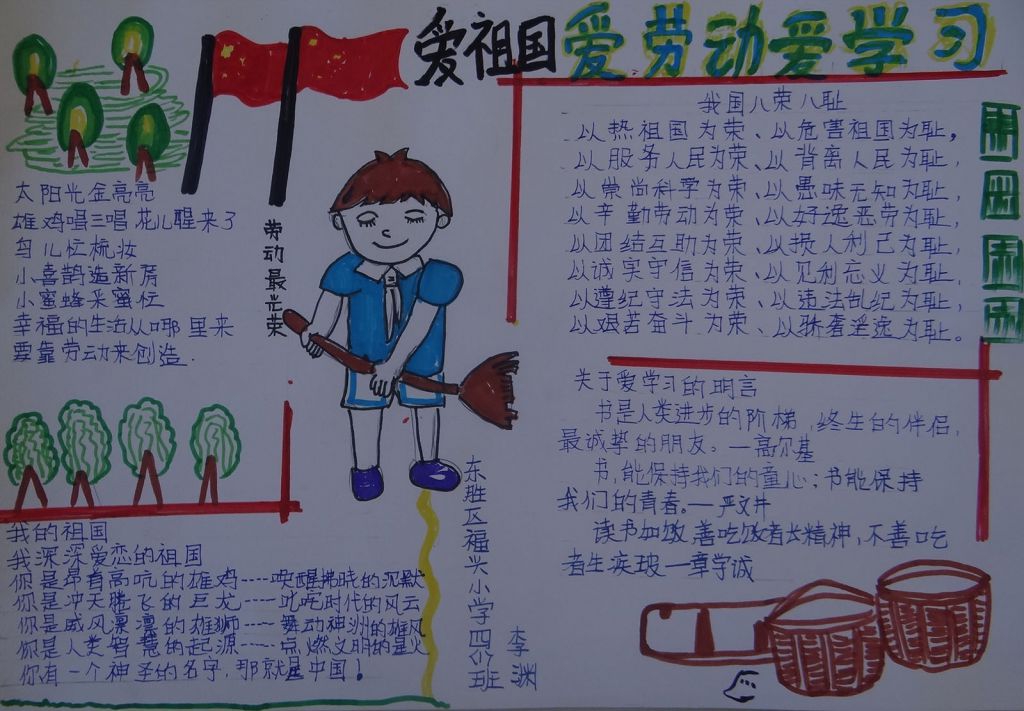 爱祖国爱劳动爱学习
太阳光金亮亮
雄鸡唱三唱花儿醒来了
鸟儿忙梳妆
小喜鹊造新房
小蜜蜂采蜜忙
幸福的生活从哪里来
要靠劳动来创造.
劳动最光荣
我国八荣八耻
以热祖国为荣、以危害祖国为耻,
以服务人民为荣、以背离人民为耻,
以崇尚科学为荣、以愚昧无知为耻,
以辛勤劳动为荣、以好逸恶劳为耻,
以团结互助为荣、以损人利己为耻,
以诚实守信为荣、以见利忘义为耻,
以遵纪守法为荣、以违法乱纪为耻,
以艰苦奋斗为荣、以骄奢淫逸为耻。
关于爱学习的明言
书是人类进步的阶梯,终生的伴侣,
最诚挚的朋友。—高尔基
书,能保持我们的童心;书能保持
我们的青春。—严文井
读书加饭,善吃饭者长精神,不善吃
者生疾玻—章学诚
我的祖国
我深深爱恋的祖国
你是昂首高吭的雄鸡----唤醒拂晓的沉默
你是冲天腾飞的巨龙----叱咤时代的风云
你是威风凛凛的雄狮----舞动神洲的雄风
你是人类智慧的起源----点燃文明的星火
你有一个神圣的名字,那就是中国!
东胜区福兴小学四
班
李渊